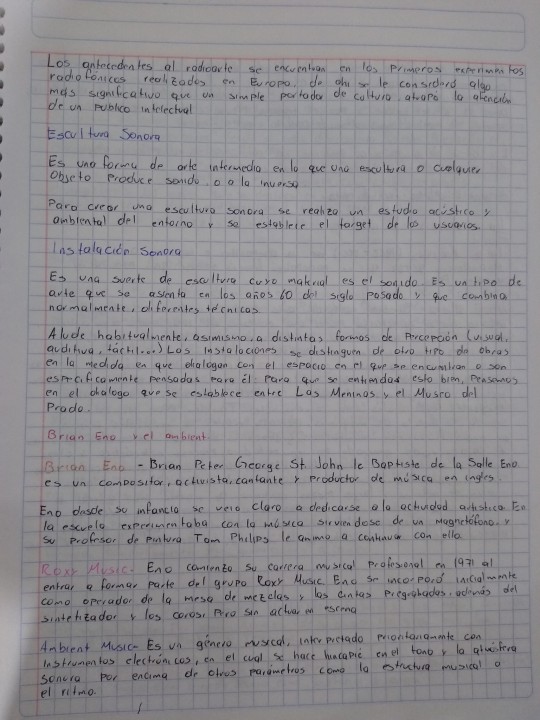 Los antecedentes al radioarte se encuentran en los primeros experimentos
radiofónicos realizados en Europa, de ahi se le consideró algo
más significativo que un simple portador de cultura atrapó la atención
de un publico intelectual
Escultura Sonora
Es una forma de arte intermedia en la que una escultura o cualquier
Objeto produce sonido, o a la inversa
Para crear una escultura sonora se realiza un estudio acústico y
ambiental del entorno y se establece el target de los usuarios.
Instalación Sonora
Es una suerte de escultura cuyo material es el sonido. Es un tipo de
arte que se asienta en los años 60 del siglo pasado y que combina
normalmente, diferentes técnicos
Alude habitualmente, asimismo, a distintas formas de Percepción (visual,
auditiva, táctil...) Las instalaciones se distinguen de otro tipo de obras
en la medida en que dialogan con el espacio en el que se encuentran o son
especificamente pensadas para él. Para que se entienda esto bien, pensemos
en el dialogo que se establece entre Las Meninas y el Museo del
Prado.
Brian Eno y el ambient.
Brian Eno - Brian Peter George St. John le Baptiste de la Salle Eno
es un compositor, activista, cantante y productor de música en ingles.
Eno desde su infancia se veia claro a dedicarse a la actividad artistica. En
la escuela experimentaba con la música sirviendose de un magnetófono y
su profesor de pintura Tom Philips le animo a continuar con ello
Roxy Music- Eno comienza su carrera musical profesional en 1971 al
entrar a formar parte del grupo Roxy Music. Eno se incorporó inicialmente
como operador de la mesa de mezclas y las cintas pregrabadas, además del
sintetizador y los coros, pero sin actuar en escena
Ambient Music- Es un género musical, interpretado prioritariamente con
Instrumentos electrónicos, en el cual se hace hincapié en el tono y la atmósfera
sonora por encima de otros parámetros como la estructura musical o
el ritmo.